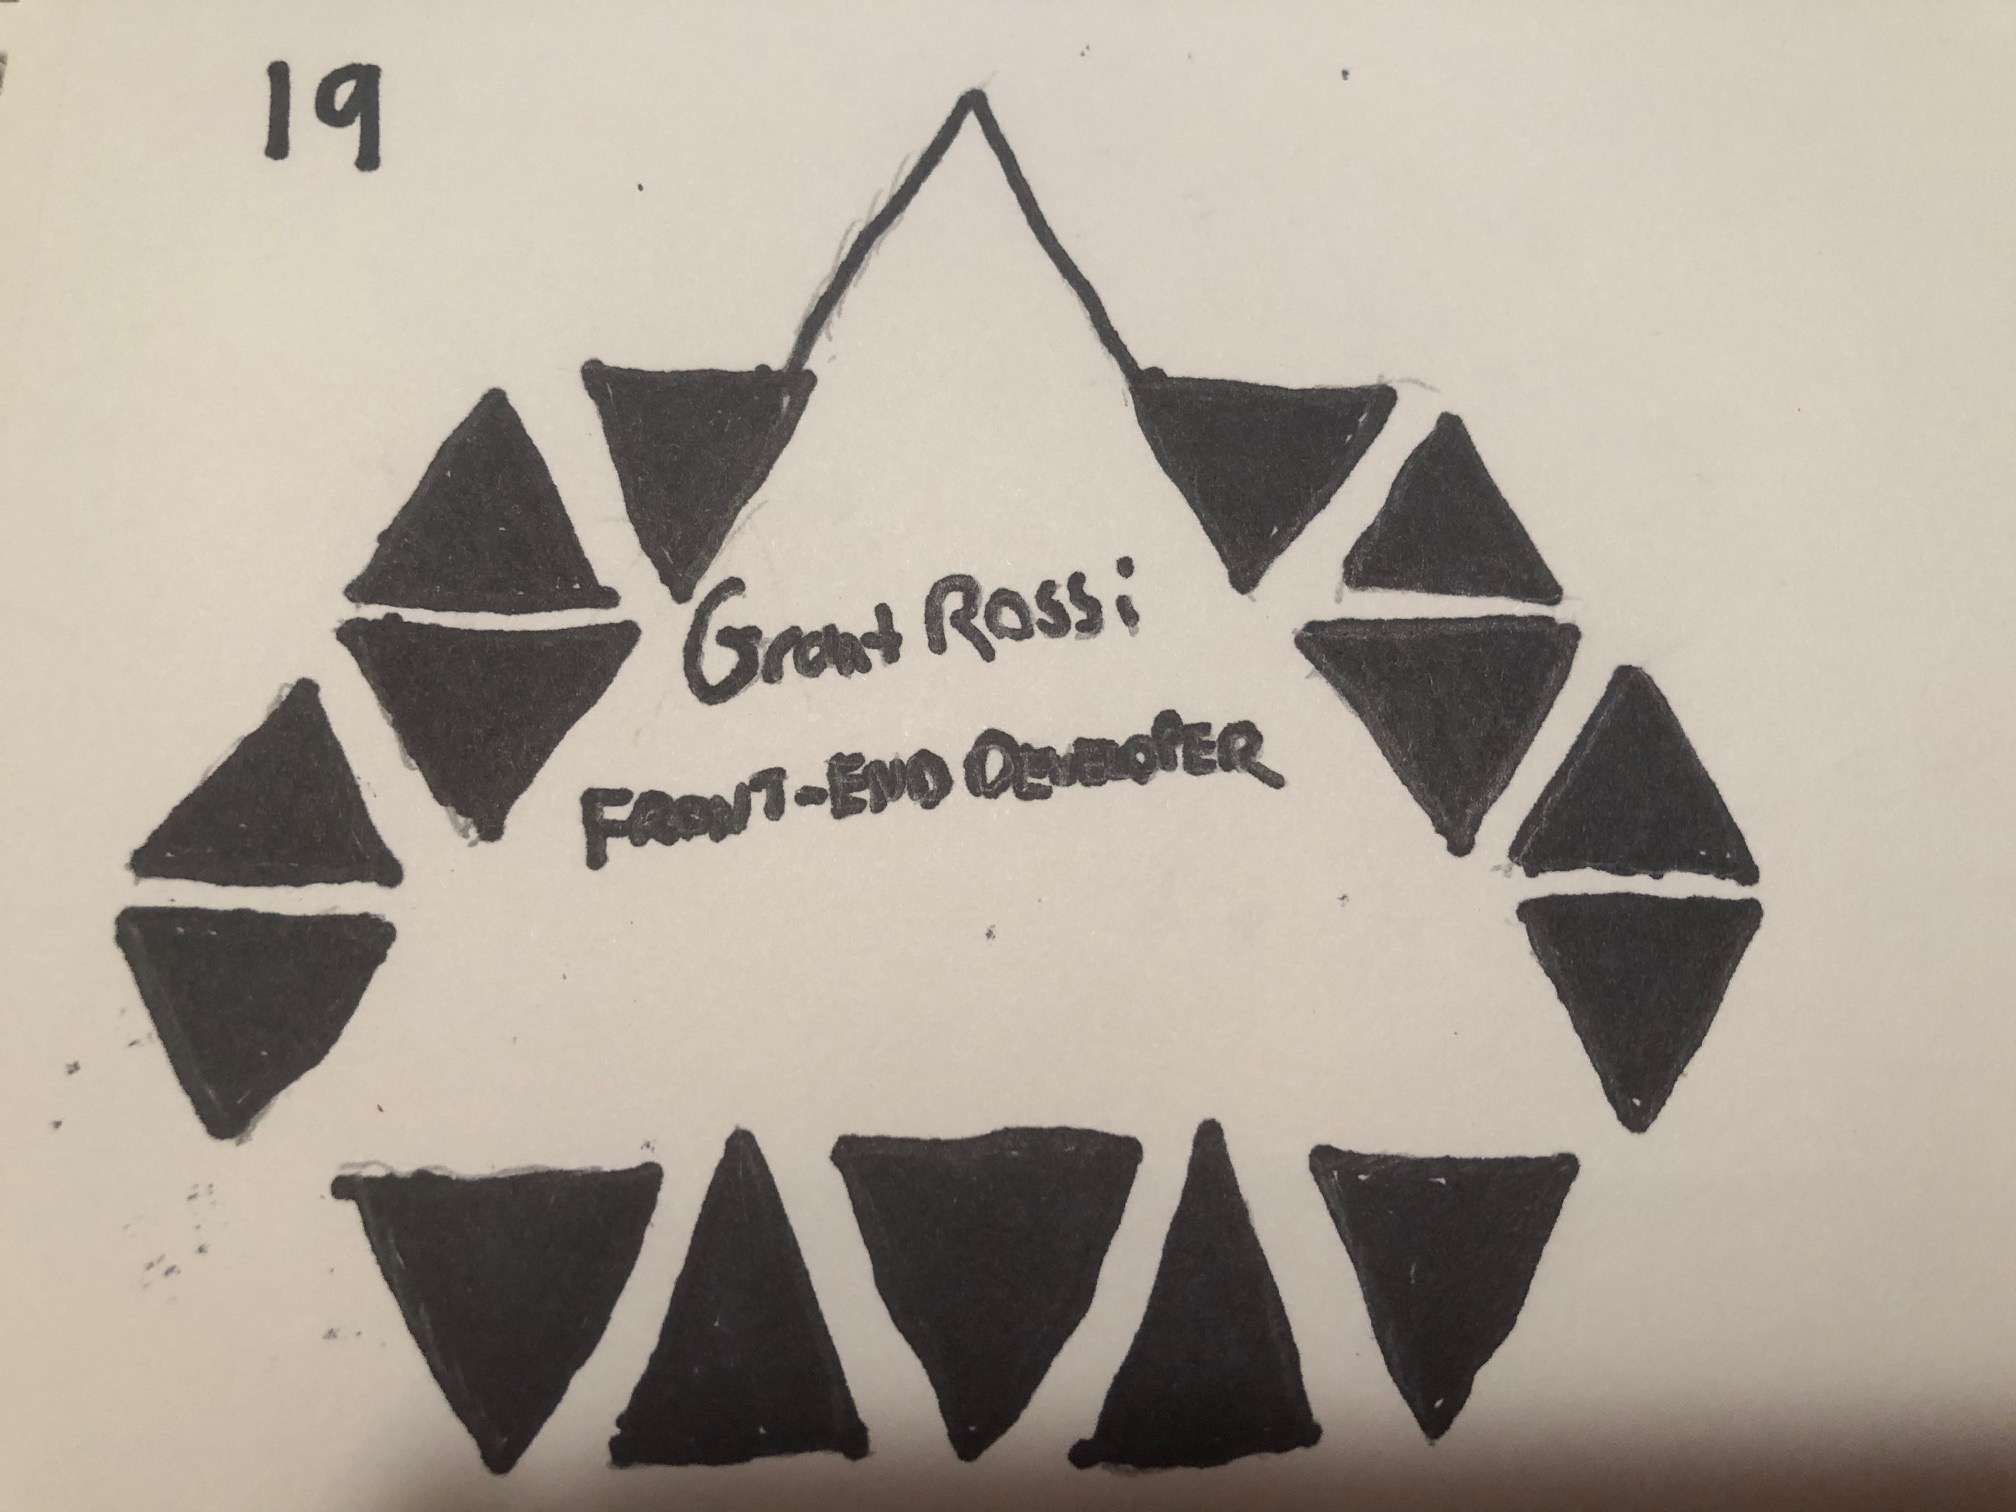 19
Grant Rossi
FRONT-END DEVELOPER